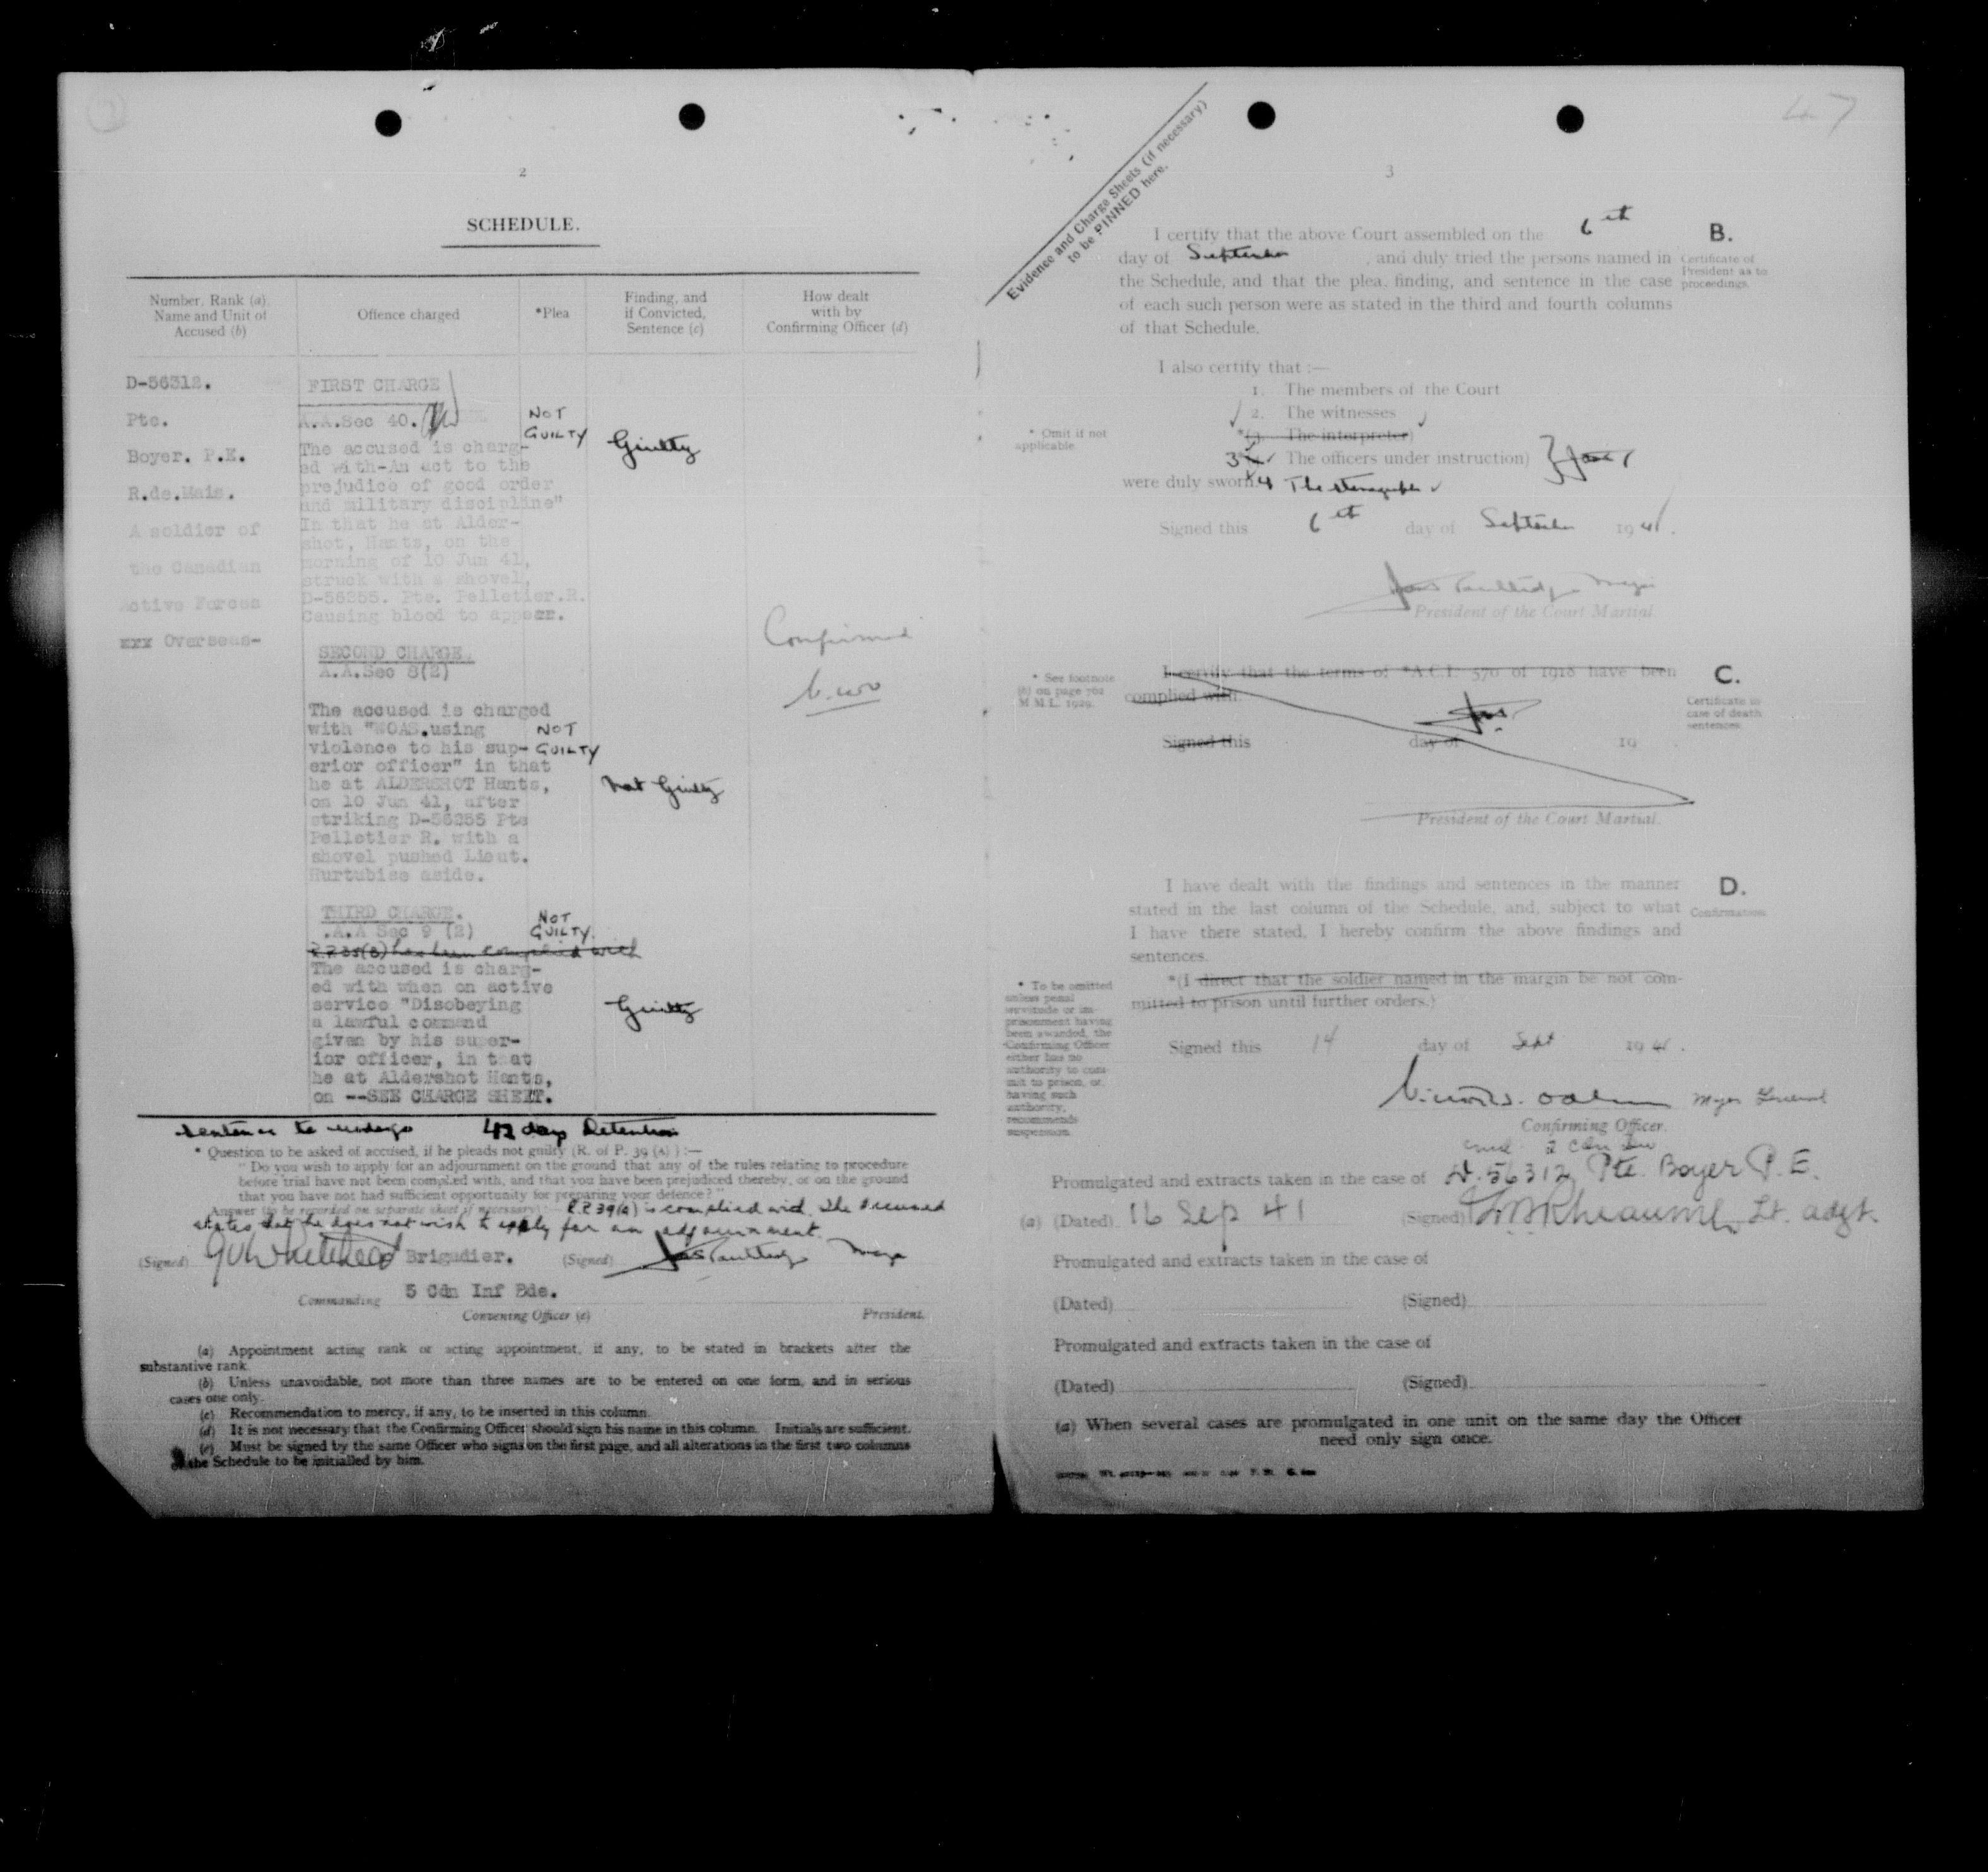 2
SCHEDULE.
Number, Rank (a), Name and Unit of Accused (b)
Offence charged
*Plea
Finding, and if Convicted, Sentence (c)
How dealt with by Confirming Officer (d)
D-56312.
Pte.
Boyer. P.E.
R.de.Mais.
A soldier of
the Canadian
Active Forces
xxx Overseas-
FIRST CHARGE
A.A.Sec 40.
The accused is charg-
ed with-An act to the
prejudice of good order
and military discipline"
In that he at Alder-
shot, Hants, on the
morning of 10 Jun 41,
struck with a shovel,
D-56255. Pte. Pelletier.R.
Causing blood to appear.
NOT
GUILTY
Guilty
SECOND CHARGE.
A.A.Sec 8(2)
The accused is charged
with "WOAS.using
violence to his sup-
erior officer" in that
he at ALDERSHOT Hants,
on 10 Jun 41, after
striking D-56255 Pte
Pelletier R. with a
shovel pushed Lieut.
Hurtubise aside.
NOT
GUILTY
Not Guilty
Confirmed
THIRD CHARGE.
.A.A Sec 9 (2)
R.P.35(B) has been complied with
The accused is charg-
ed with when on active
service "Disobeying
a lawful command
given by his super-
ior officer, in that
he at Aldershot Hants,
on --SEE CHARGE SHEET.
NOT
GUILTY.
Guilty
Sentence to undergo 42 days Detention
* Question to be asked of accused, if he pleads not guilty (R. of P. 39 (A) ) :—
" Do you wish to apply for an adjournment on the ground that any of the rules relating to procedure
before trial have not been complied with, and that you have been prejudiced thereby, or on the ground
that you have not had sufficient opportunity for preparing your defence? "
Answer (to be recorded on separate sheet if necessary) :— R.P 39(a) is complied with. The accused
states that he does not wish to apply for an adjournment.
(Signed) Brigadier. (Signed) Major
Commanding 5 Cdn Inf Bde.
Convening Officer (e) President.
(a) Appointment acting rank or acting appointment, if any, to be stated in brackets after the
substantive rank.
(b) Unless unavoidable, not more than three names are to be entered on one form, and in serious
cases one only.
(c) Recommendation to mercy, if any, to be inserted in this column.
(d) It is not necessary that the Confirming Officer should sign his name in this column. Initials are sufficient.
(e) Must be signed by the same Officer who signs on the first page, and all alterations in the first two columns
the Schedule to be initialled by him.
47
3
Evidence and Charge Sheets (if necessary)
to be PINNED here.
I certify that the above Court assembled on the 6th
day of September , and duly tried the persons named in
the Schedule, and that the plea, finding, and sentence in the case
of each such person were as stated in the third and fourth columns
of that Schedule.
B.
Certificate of
President as to
proceedings.
I also certify that :—
1. The members of the Court
2. The witnesses
*(3. The interpreter)
* Omit if not
applicable.
3 The officers under instruction)
were duly sworn. 4 The stenographer
Signed this 6th day of September 1941.
President of the Court Martial.
I certify that the terms of *A.C.I. 570 of 1918 have been
complied with.
* See footnote
(b) on page 762
M.M.L. 1929.
C.
Certificate in
case of death
sentences.
Signed this day of 19
President of the Court Martial.
I have dealt with the findings and sentences in the manner
stated in the last column of the Schedule, and, subject to what
I have there stated, I hereby confirm the above findings and
sentences.
D.
Confirmation.
*(I direct that the soldier named in the margin be not com-
mitted to prison until further orders.)
* To be omitted
unless penal
servitude or im-
prisonment having
been awarded, the
Confirming Officer
either has no
authority to com-
mit to prison, or,
having such
authority,
recommends
suspension.
Signed this 14 day of Sept 1941.
Major General
Confirming Officer.
2 Cdn Div
Promulgated and extracts taken in the case of D.56312 Pte. Boyer P.E.
(a) (Dated) 16 Sep 41 (Signed) Rheaume Lt. adjt.
Promulgated and extracts taken in the case of
(Dated) (Signed)
Promulgated and extracts taken in the case of
(Dated) (Signed)
(a) When several cases are promulgated in one unit on the same day the Officer
need only sign once.